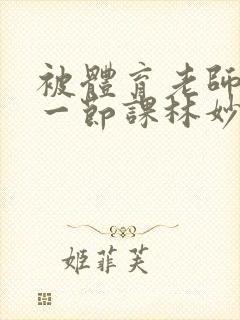 被體育老師
一節課林妙
姬菲芙